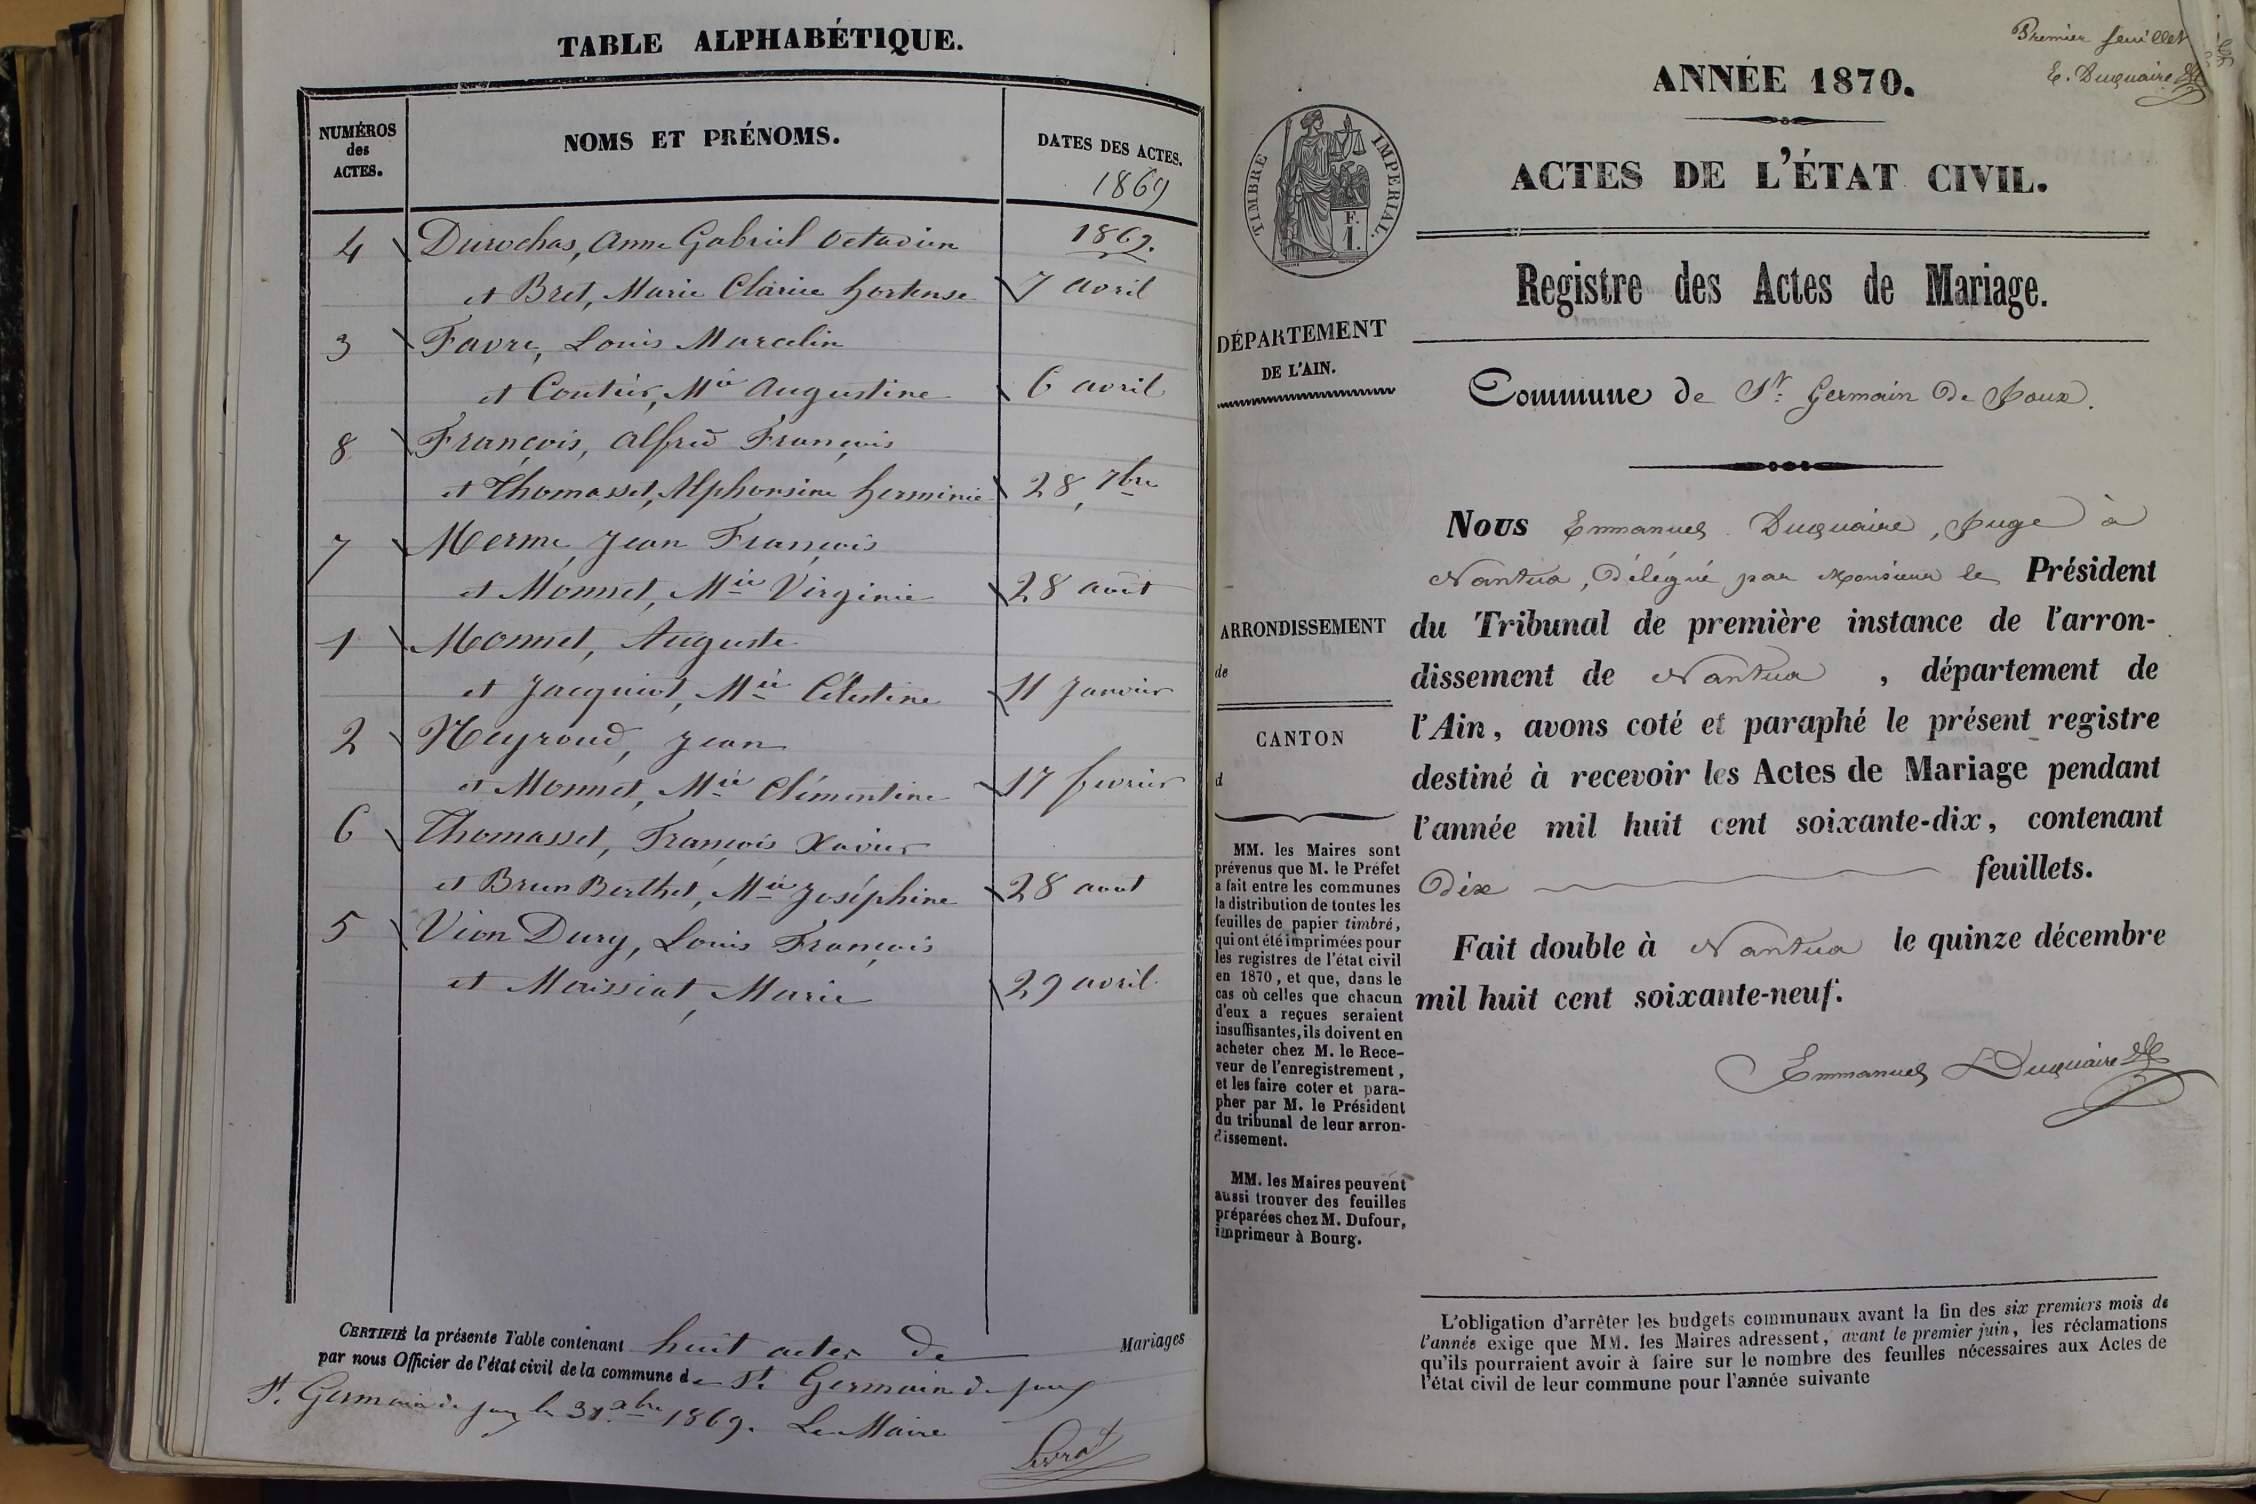 TABLE ALPHABÉTIQUE.
NUMÉROS
des
ACTES.
NOMS ET PRÉNOMS.
DATES DES ACTES.
1869
4 Durochas, Anne Gabriel Octavien 1869.
et Bret, Marie Clarice hortense 7 avril
3 Favre, Louis Marcelin
et Coutier, Mie Augustine 6 avril
8 François, Alfred François
et Thomasset, Alphonsine herminie 28, 7bre
7 Merme, Jean François
et Monnet, Mie Virginie 28 août
1 Monnet, Auguste
et Jacquiot, Mie Célestine 11 Janvier
2 Neyroud, Jean
et Monnet, Mie Clémentine 17 fevrier
6 Thomasset, François Xavier
et Brun Berthet, Mie Joséphine 28 août
5 Vion Dury, Louis François
et Moissiat, Marie 29 avril
CERTIFIÉ la présente Table contenant huit actes de Mariages
par nous Officier de l'état civil de la commune de St. Germain de joux
St. Germain de joux le 31 xbre 1869. Le Maire
Premier feuillet
E. Duquaire
ANNÉE 1870.
ACTES DE L'ÉTAT CIVIL.
TIMBRE IMPÉRIAL.
F.
1.
Registre des Actes de Mariage.
DÉPARTEMENT
DE L'AIN.
Commune de St. Germain De Joux.
Nous Emmanuel Duquaire, Juge à
Nantua, Délégué par Monsieur le Président
ARRONDISSEMENT
de
du Tribunal de première instance de l'arron-
dissement de Nantua, département de
CANTON
d
l'Ain, avons coté et paraphé le présent registre
destiné à recevoir les Actes de Mariage pendant
l'année mil huit cent soixante-dix, contenant
Dix feuillets.
Fait double à Nantua le quinze décembre
mil huit cent soixante-neuf.
Emmanuel Duquaire
MM. les Maires sont
prévenus que M. le Préfet
a fait entre les communes
la distribution de toutes les
feuilles de papier timbré,
qui ont été imprimées pour
les registres de l'état civil
en 1870, et que, dans le
cas où celles que chacun
d'eux a reçues seraient
insuffisantes, ils doivent en
acheter chez M. le Rece-
veur de l'enregistrement,
et les faire coter et para-
pher par M. le Président
du tribunal de leur arron-
dissement.
MM. les Maires peuvent
aussi trouver des feuilles
préparées chez M. Dufour,
imprimeur à Bourg.
L'obligation d'arrêter les budgets communaux avant la fin des six premiers mois de
l'année exige que MM. les Maires adressent, avant le premier juin, les réclamations
qu'ils pourraient avoir à faire sur le nombre des feuilles nécessaires aux Actes de
l'état civil de leur commune pour l'année suivante